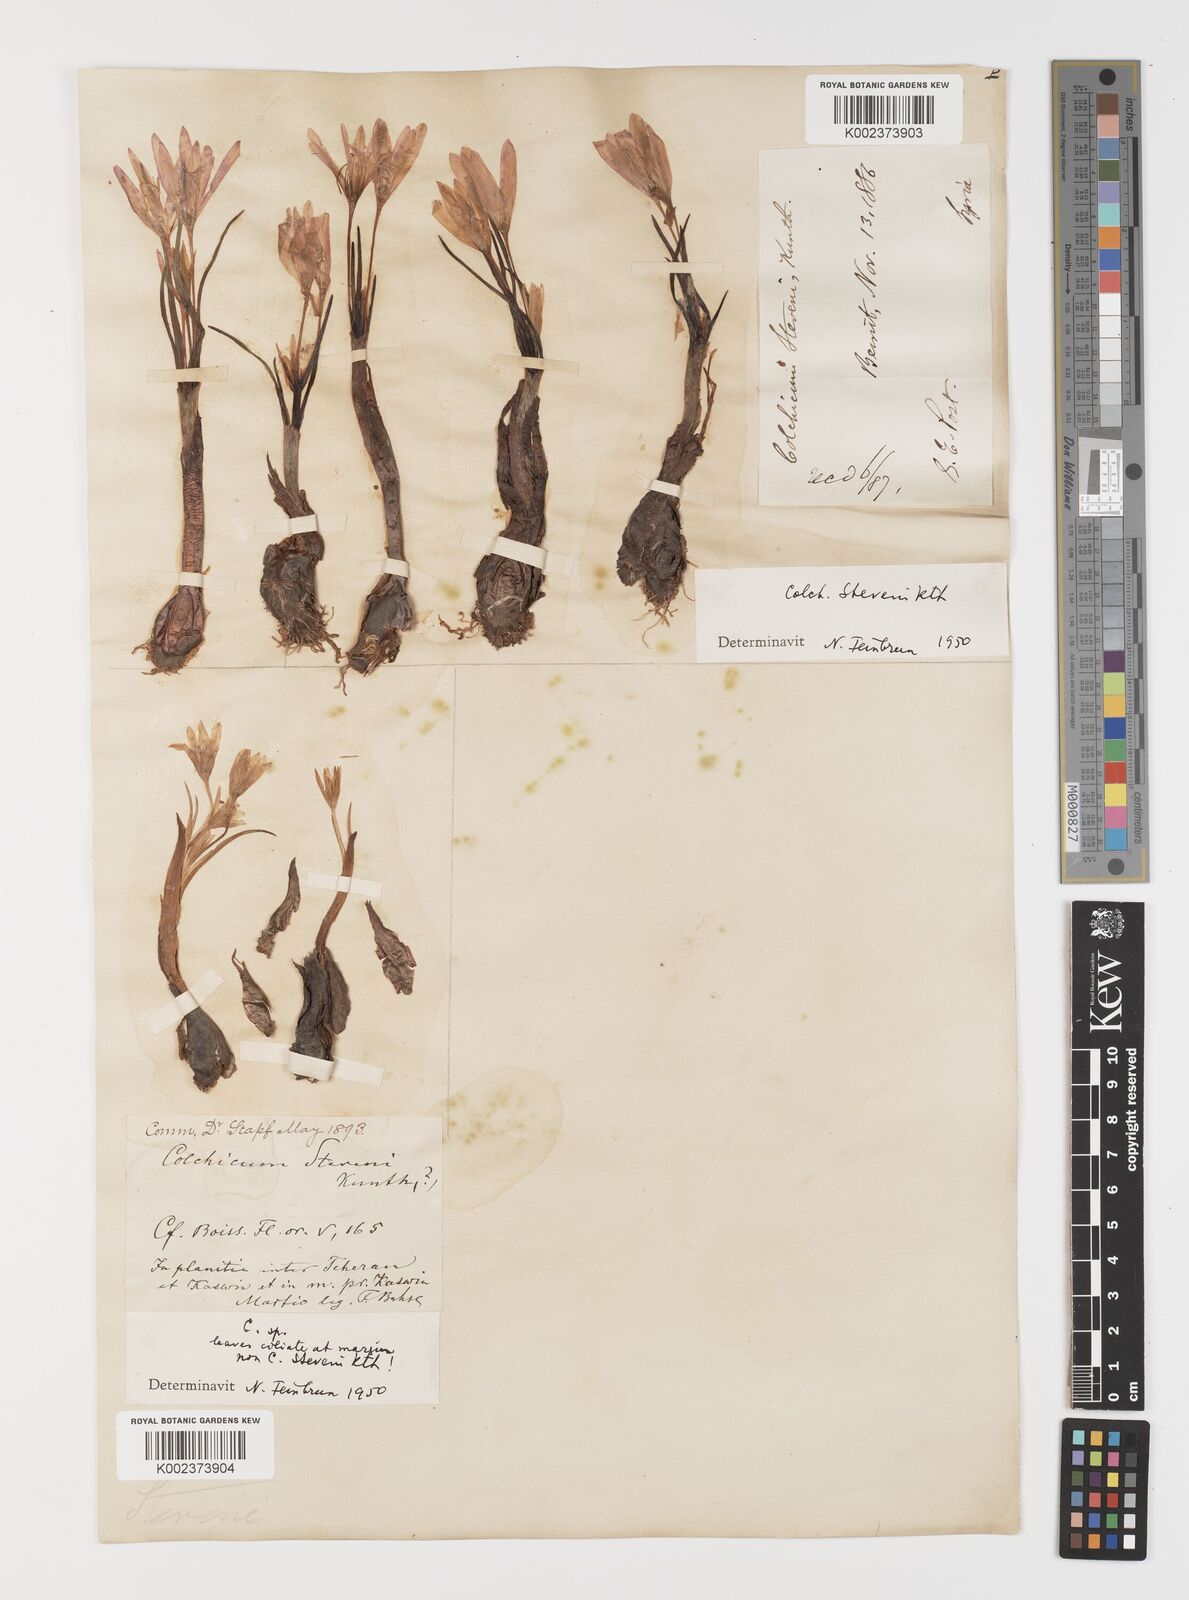 ROYAL BOTANIC GARDENS KEW
K002373903
Colchicum Steveni, Kunth.
Beirut, Nov. 13, 1886
Syria
G. E. Post.
recd 6/87.
Colch. Steveni Kth
Determinavit N. Feinbrun 1950
Comm. Dr Stapf May 1893.
Colchicum Steveni
Kunth (?)
Cf. Boiss. Fl. or. V, 165
In planitie inter Teheran
et Kaswin et in m. pr. Kaswin
Martio leg. F. Buhse
C. sp.
leaves ciliate at margin
non C. Steveni Kth!
Determinavit N. Feinbrun 1950
ROYAL BOTANIC GARDENS KEW
K002373904
Steveni
inches
Density
Don Williams
centimeters
M000827
Kew
Royal Botanic Gardens
copyright reserved
0 1 2 3 4 5 6 7 8 9 10
cm